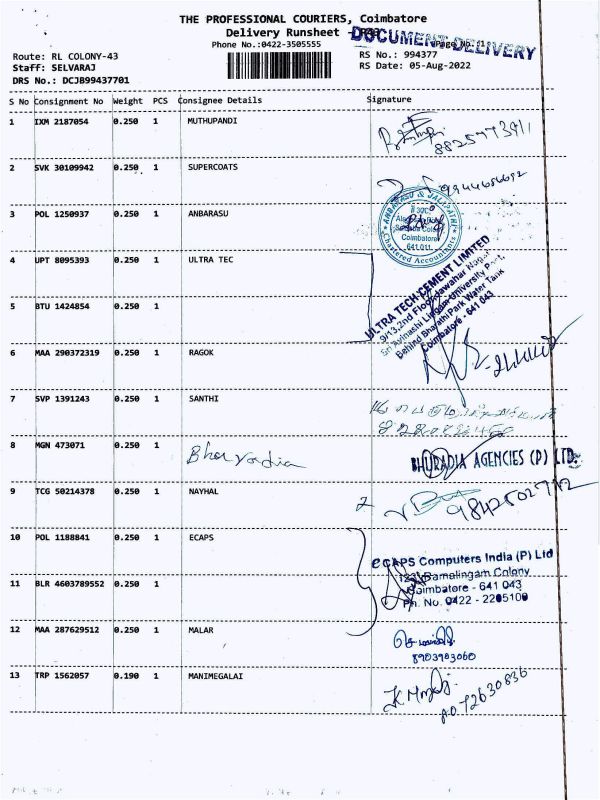 THE PROFESSIONAL COURIERS, Coimbatore
Delivery Runsheet
DOCUMENT DELIVERY
Phone No.:0422-3505555
Page No.:1
Route: RL COLONY-43
RS No.: 994377
Staff: SELVARAJ
RS Date: 05-Aug-2022
DRS No.: DCJB99437701
S No Consignment No Weight PCS Consignee Details Signature
1 IXM 2187054 0.250 1 MUTHUPANDI
2 SVK 30109942 0.250 1 SUPERCOATS
3 POL 1250937 0.250 1 ANBARASU
ANBARASU & JALAPATHI
Coimbatore
641 011.
Chartered Accountants
4 UPT 8095393 0.250 1 ULTRA TEC
ULTRA TECH CEMENT LIMITED
9/13,2nd Floor,Jawahar Nagar
Sri Avinashi Lingam University Post,
Behind Bharathi Park Water Tank
Coimbatore - 641 043
5 BTU 1424854 0.250 1
6 MAA 290372319 0.250 1 RAGOK
7 SVP 1391243 0.250 1 SANTHI
8 MGN 473071 0.250 1 Bhuradia
BHURADIA AGENCIES (P) LTD.
9 TCG 50214378 0.250 1 NAYHAL
10 POL 1188841 0.250 1 ECAPS
eCAPS Computers India (P) Ltd
123, Ramalingam Colony
Coimbatore - 641 043
Ph. No. 0422 - 2205100
11 BLR 4603789552 0.250 1
12 MAA 287629512 0.250 1 MALAR
8903903060
13 TRP 1562057 0.190 1 MANIMEGALAI